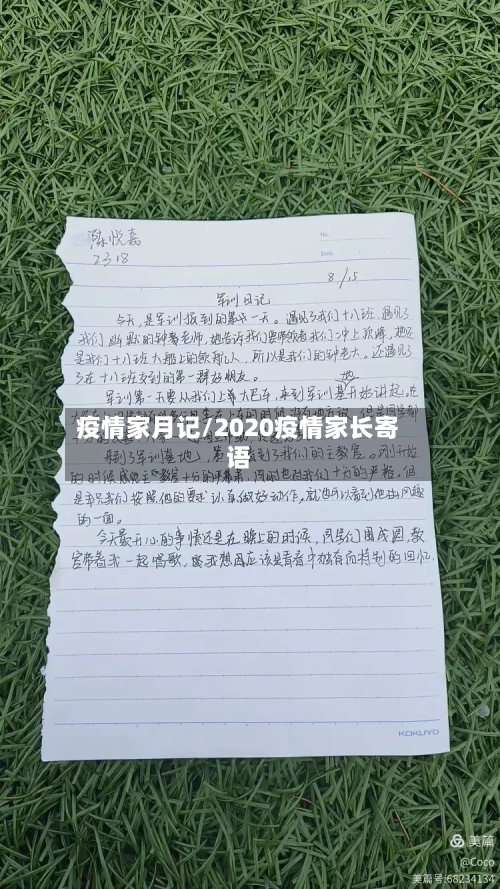 陈悦嘉
2318
No.
Date
8/15
军训日记
今天,是军训报到的第一天。遇见了我们十八班,遇见了
我们幽默的钟老师,她告诉我们要带领着我们冲上顶峰,她
是我们十八班大船上的领航人,所以是我们的钟老大。还遇见了
了在十八班交到的第一群好朋友。
军训第一天要从我们上车大巴车,来到军训基地开始讲起,在
疫情家月记/2020疫情家长寄
语
来到了军训基地,第一 看到了我们的主教官。刚开始
的时候感觉主教官十分的严肃 ,同时也对我们十分的严格,但
是只要我们按照他的要求认真做好动作,就可以看到他幽风趣
的一面。
今天最开心的事情还是在晚上的时候,同学们围成圆,教
官带着我一起唱歌, 我想 应该是青春中独有而特别的回忆.
KOKUYO
美篇
@Coco
美篇号:68234134